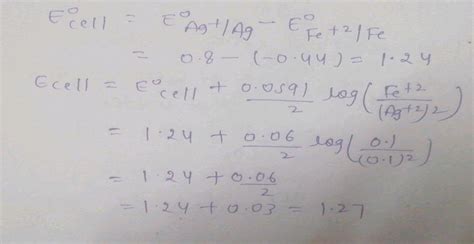 E°cell = E°Ag+/Ag − E°Fe+2/Fe
= 0.8 − (−0.44) = 1.24
Ecell = E°cell + 0.0591/2 log(Fe+2/(Ag+2)2)
= 1.24 + 0.06/2 log(0.1/(0.1)2)
= 1.24 + 0.06/2
= 1.24 + 0.03 = 1.27